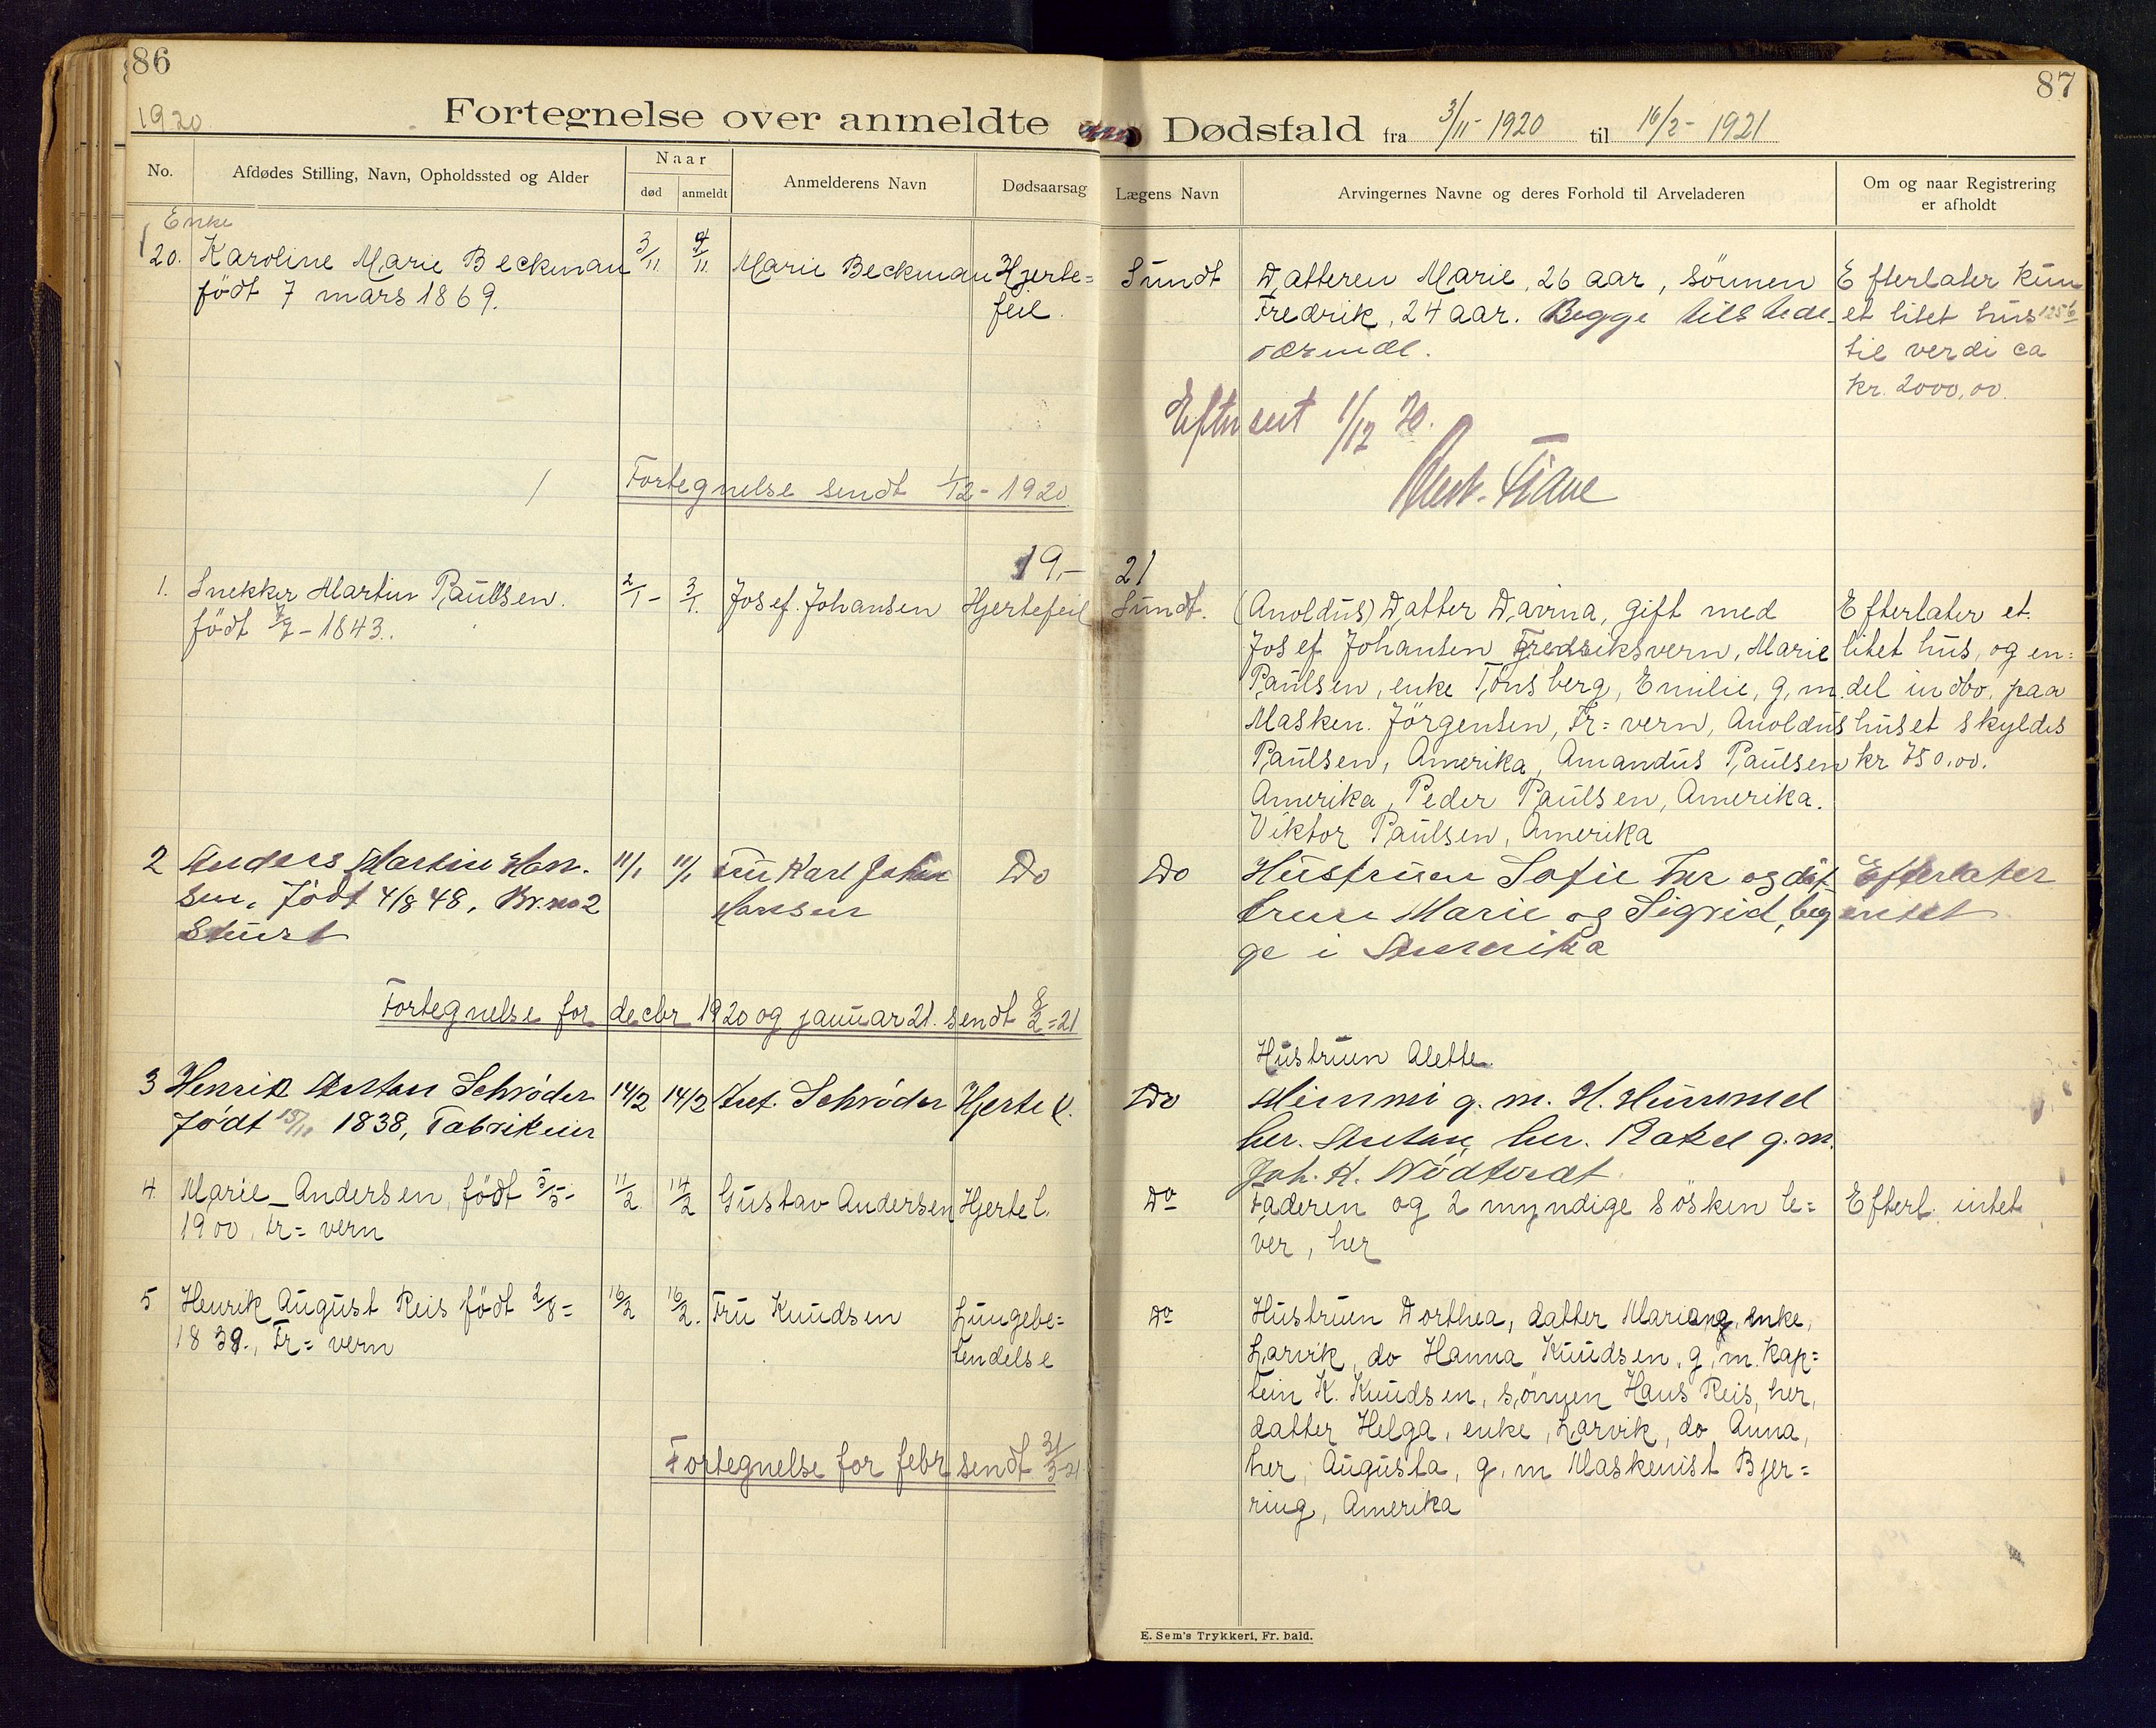 86
1920
Fortegnelse over anmeldte
No.
Afdødes Stilling, Navn, Opholdssted og Alder
Naar
død
anmeldt
Anmelderens Navn
Dødsaarsag
Enke
20. Karoline Marie Beckman 3/11 4/11 Marie Beckman Hjerte=
født 7 mars 1869. feil.
Fortegnelse sendt 1/12 - 1920
19.-
1. Snekker Martin Paulsen. 2/1 - 3/1. Josef. Johansen Hjertefeil
født - 1843.
2 Anders Martin Han- 11/1 11/1 Fru Karl Johan Do
sen, født 4/8 48, Br.no 2 Hansen
Fortegnelse for decbr 1920 og januar 21. sendt 8/2 = 21
3 Henrik Anton Schrøder 14/2 14/2 Ant. Schrøder Hjerte l.
født 18/11 1838, Fabrikeier
4. Marie Andersen, født 5/5- 11/2 14/2 Gustav Andersen Hjerte l.
1900, Fr= vern
5 Henrik August Reis født 2/8= 16/2 16/2. Fru Knudsen Lungebe=
1839., Fr= vern tendelse
Fortegnelse for febr sendt 31/3-21
87
Dødsfald fra 3/11- 1920 til 16/2- 1921
Lægens Navn
Arvingernes Navne og deres Forhold til Arveladeren
Om og naar Registrering
er afholdt
Sundt Datteren Marie, 26 aar, sönnen Efterlater kun
Fredrik, 24 aar. Begge tilstede- et litet hus
værende. til verdi ca
kr. 2000,00.
Efterset 1/12 20.
21
Sundt. (Anoldus) Datter Davina, gift med Efterlater et
Josef Johansen Fredriksvern, Marie litet hus, og en=
Paulsen, enke Tønsberg, Emilie, g, m. del indbo, paa
Masken. Jörgensen, Fr= vern, Anoldus huset skyldes
Paulsen, Amerika, Amandus Paulsen kr 750.00.
Amerika, Peder Paulsen, Amerika.
Viktor Paulsen, Amerika
Do Hustruen Sofie her og døt- Efterlater
trene Marie og Sigrid, beg intet
ge i Amerika
Hustruen Alette.
Do Mimmi g. m. H. Hummel
her. Anton, her. Rakel g. m.
Joh. K. Nödtvedt
Do Faderen og 2 myndige sösken le= Efterl. intet
ver, her
Do Hustruen Dorthea, datter Mariane, enke,
Larvik, do Hanna Knudsen, g, m. Kap=
tein K. Knudsen, sönnen Hans Reis, her,
datter Helga, enke, Larvik, do Anna,
her, Augusta, g, m Maskenist Bjer=
ring, Amerika
E. Sem's Trykkeri, Fr. hald.